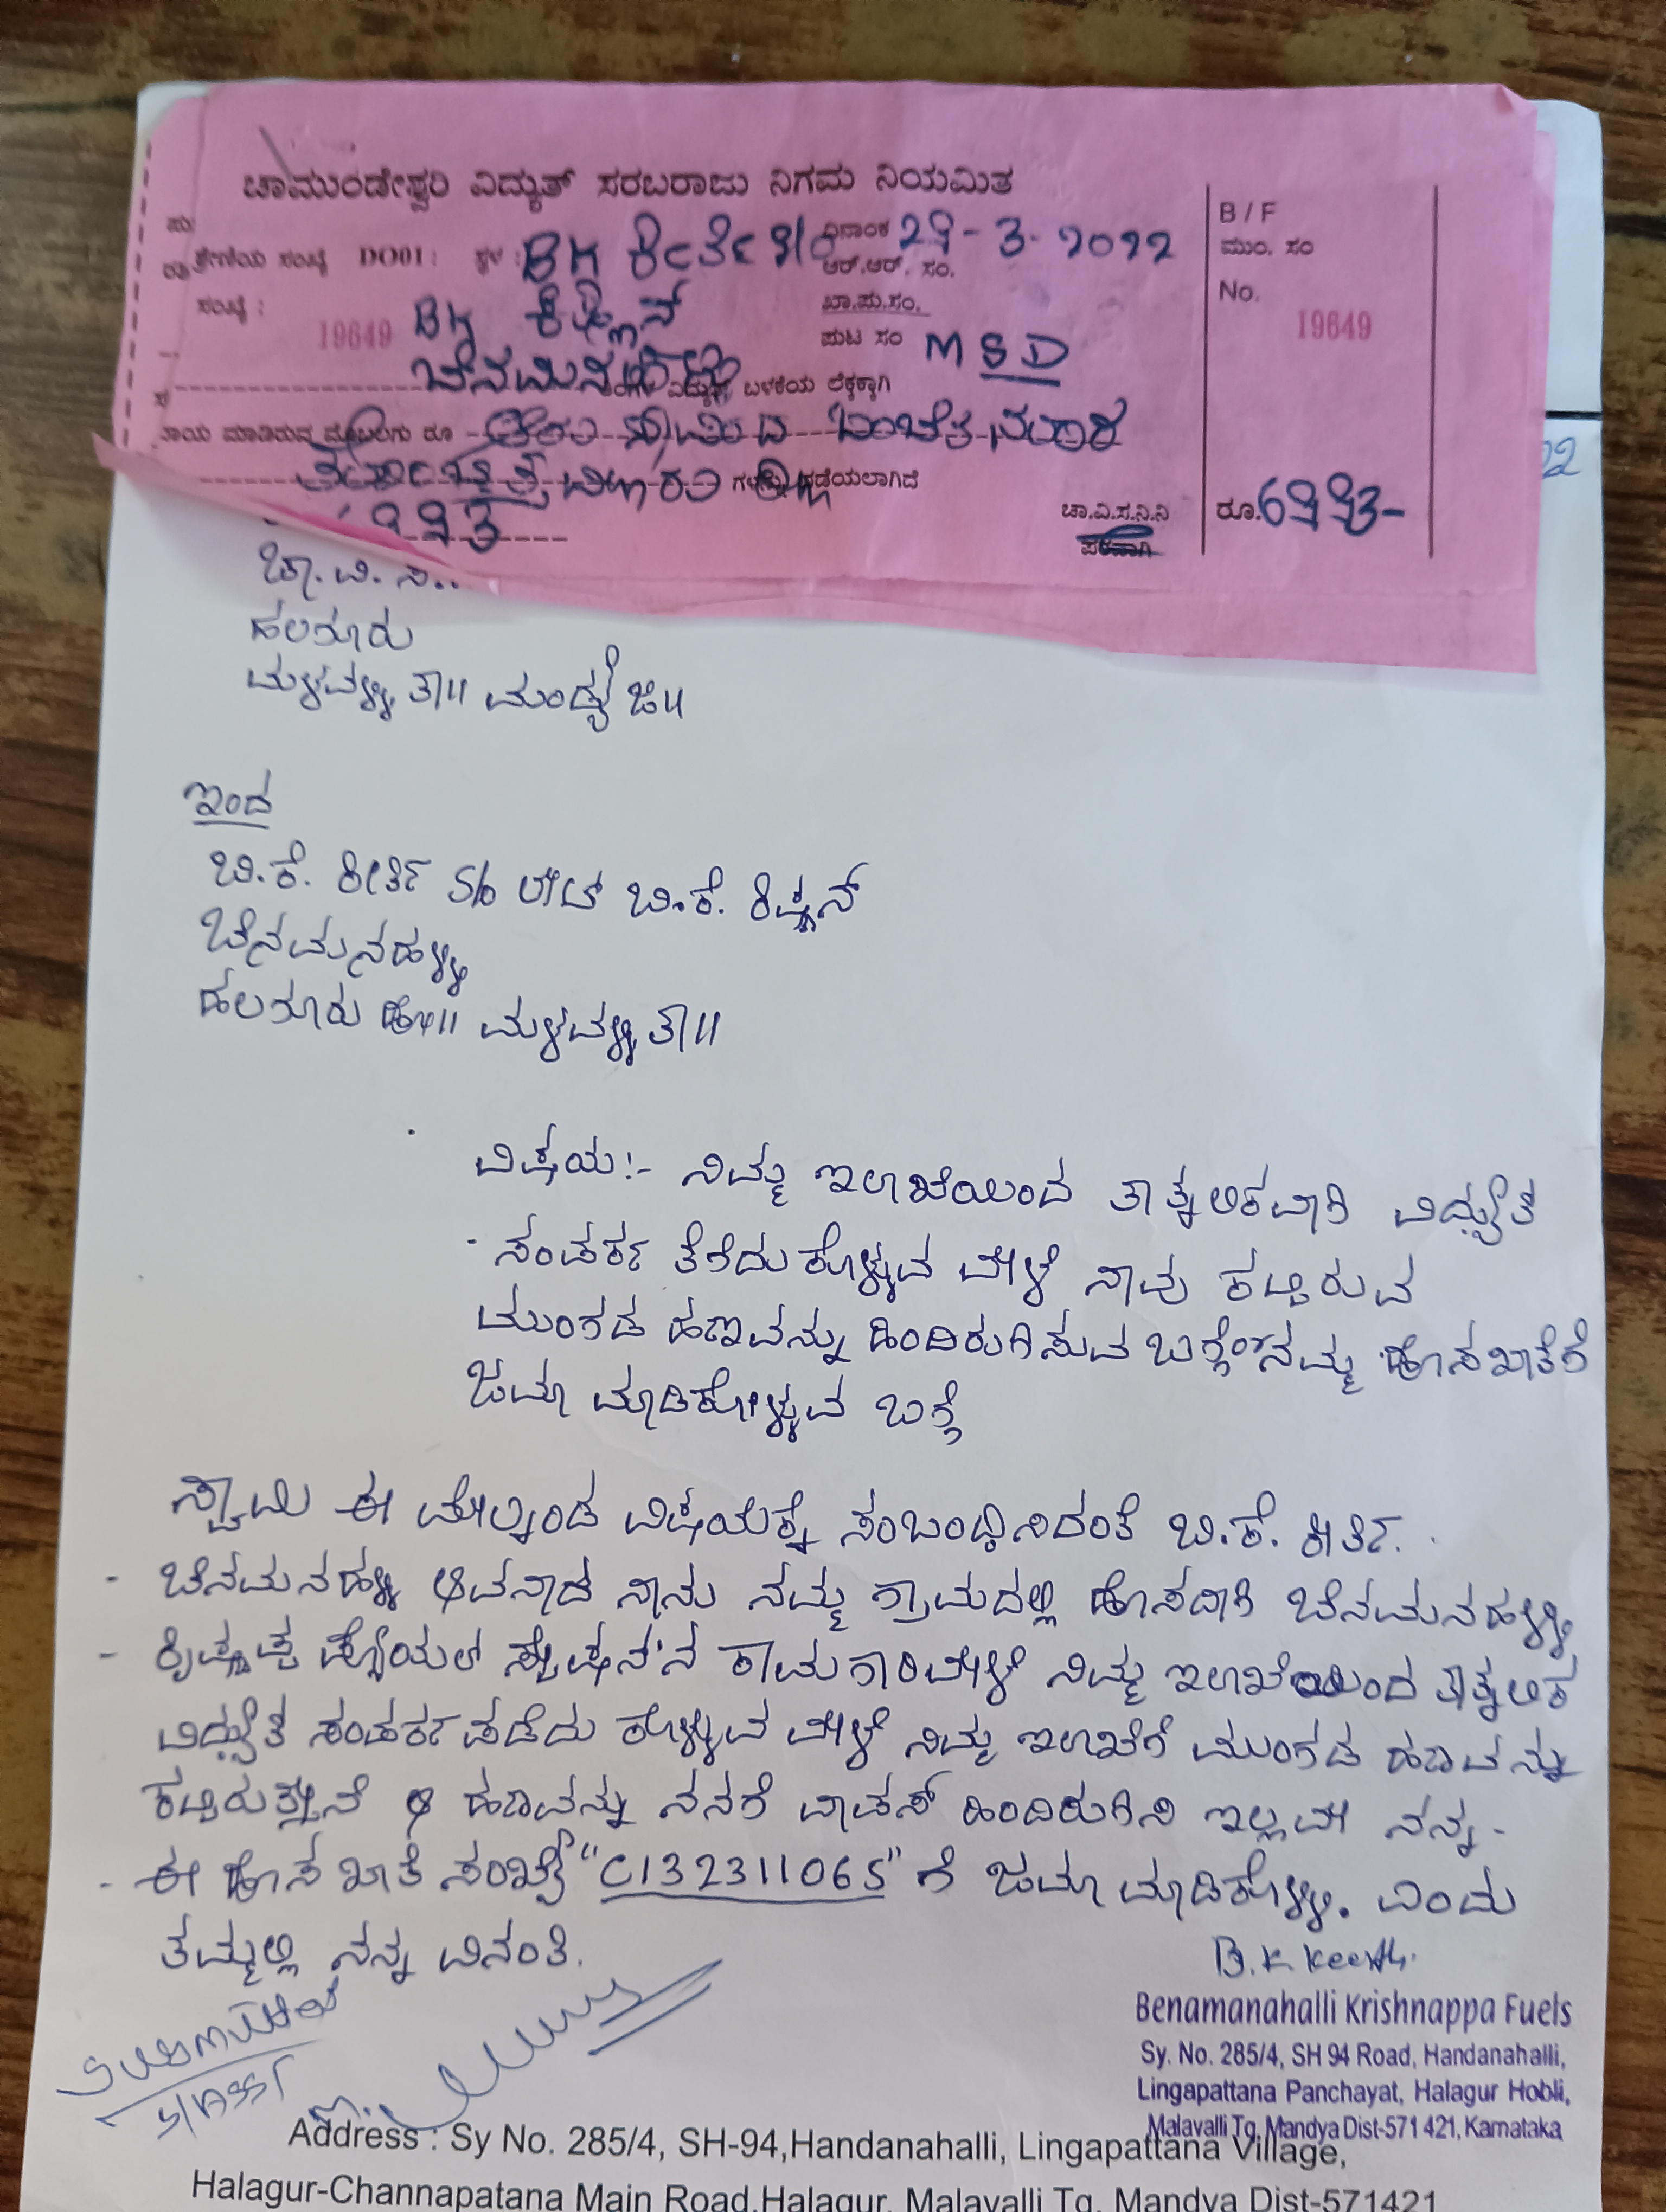 ಚಾಮುಂಡೇಶ್ವರಿ ವಿದ್ಯುತ್ ಸರಬರಾಜು ನಿಗಮ ನಿಯಮಿತ
ಶ್ರೇಣಿಯ ಸಂಖ್ಯೆ DO01: ಸ್ಥಳ : BK ಕೀರ್ತಿ S/o ದಿನಾಂಕ 29-3-2022
ಆರ್.ಆರ್. ಸಂ.
ಸಂಖ್ಯೆ : 19649 BK
ಖಾ.ಪು.ಸಂ.
ಪುಟ ಸಂ MSD
ಬೆನಮನಹಳ್ಳಿ
ವಿದ್ಯುತ್ ಬಳಕೆಯ ಲೆಕ್ಕಕ್ಕಾಗಿ
ಮಾಡಿರುವ ಮೊಬಲಗು ರೂ ಆರು ಸಾವಿರದ
ಪಡೆಯಲಾಗಿದೆ
993
ಚಾ.ವಿ.ಸ.ನಿ.ನಿ
ಪರವಾಗಿ
B / F
ಮುಂ. ಸಂ
No.
19649
ರೂ. 6993-
22
ಚಾ. ವಿ. ಸ..
ಹಲಗೂರು
ಮಳವಳ್ಳಿ ತಾ॥ ಮಂಡ್ಯ ಜಿ॥
ಇಂದ
ಬಿ.ಕೆ. ಕೀರ್ತಿ S/o ಲೇಟ್ ಬಿ.ಕೆ. ಕ್ರಿಷ್ಣನ್
ಬೆನಮನಹಳ್ಳಿ
ಹಲಗೂರು ಹೋ॥ ಮಳವಳ್ಳಿ ತಾ॥
ವಿಷಯ:- ನಿಮ್ಮ ಇಲಾಖೆಯಿಂದ ತಾತ್ಕಲಿಕವಾಗಿ ವಿದ್ಯುತ
ಸಂಪರ್ಕ ತೆಗೆದುಕೊಳ್ಳುವ ವೇಳೆ ನಾವು ಕಟ್ಟಿರುವ
ಮುಂಗಡ ಹಣವನ್ನು ಹಿಂದಿರುಗಿಸುವ ಬಗ್ಗೆ ನಮ್ಮ ಹೊಸ ಖಾತೆಗೆ
ಜಮಾ ಮಾಡಿಕೊಳ್ಳುವ ಬಗ್ಗೆ
ಸ್ವಾಮಿ ಈ ಮೇಲ್ಕಂಡ ವಿಷಯಕ್ಕೆ ಸಂಬಂಧಿಸಿದಂತೆ ಬಿ.ಕೆ. ಕೀರ್ತಿ.
- ಬೆನಮನಹಳ್ಳಿ ಆವನಾದ ನಾನು ನಮ್ಮ ಗ್ರಾಮದಲ್ಲಿ ಹೊಸದಾಗಿ ಬೆನಮನಹಳ್ಳಿ
- ಕೃಷ್ಣಪ್ಪ ಪ್ಯೂಯಲ್ ಸ್ಟೇಷನ್'ನ ಕಾಮಗಾರಿವೇಳೆ ನಿಮ್ಮ ಇಲಾಖೆಯಿಂದ ತಾತ್ಕಲಿಕ
ವಿದ್ಯುತ ಸಂಪರ್ಕ ಪಡೆದು ಕೊಳ್ಳುವ ವೇಳೆ ನಿಮ್ಮ ಇಲಾಖೆಗೆ ಮುಂಗಡ ಹಣವನ್ನು
ಕಟ್ಟಿರುತ್ತೇನೆ ಆ ಹಣವನ್ನು ನನಗೆ ವಾಪಸ್ ಹಿಂದಿರುಗಿಸಿ ಇಲ್ಲವೇ ನನ್ನ-
- ಈ ಹೊಸ ಖಾತೆ ಸಂಖ್ಯೆ "C132311065" ಗೆ ಜಮಾ ಮಾಡಿಕೊಳ್ಳಿ. ಎಂದು
ತಮ್ಮಲ್ಲಿ ನನ್ನ ವಿನಂತಿ.
B.K Keerthi
Benamanahalli Krishnappa Fuels
Sy. No. 285/4, SH 94 Road, Handanahalli,
Lingapattana Panchayat, Halagur Hobli,
Malavalli Tq, Mandya Dist-571 421, Karnataka
Address : Sy No. 285/4, SH-94,Handanahalli, Lingapattana Village,
Halagur-Channapatana Main Road,Halagur, Malavalli Tq, Mandya Dist-571421